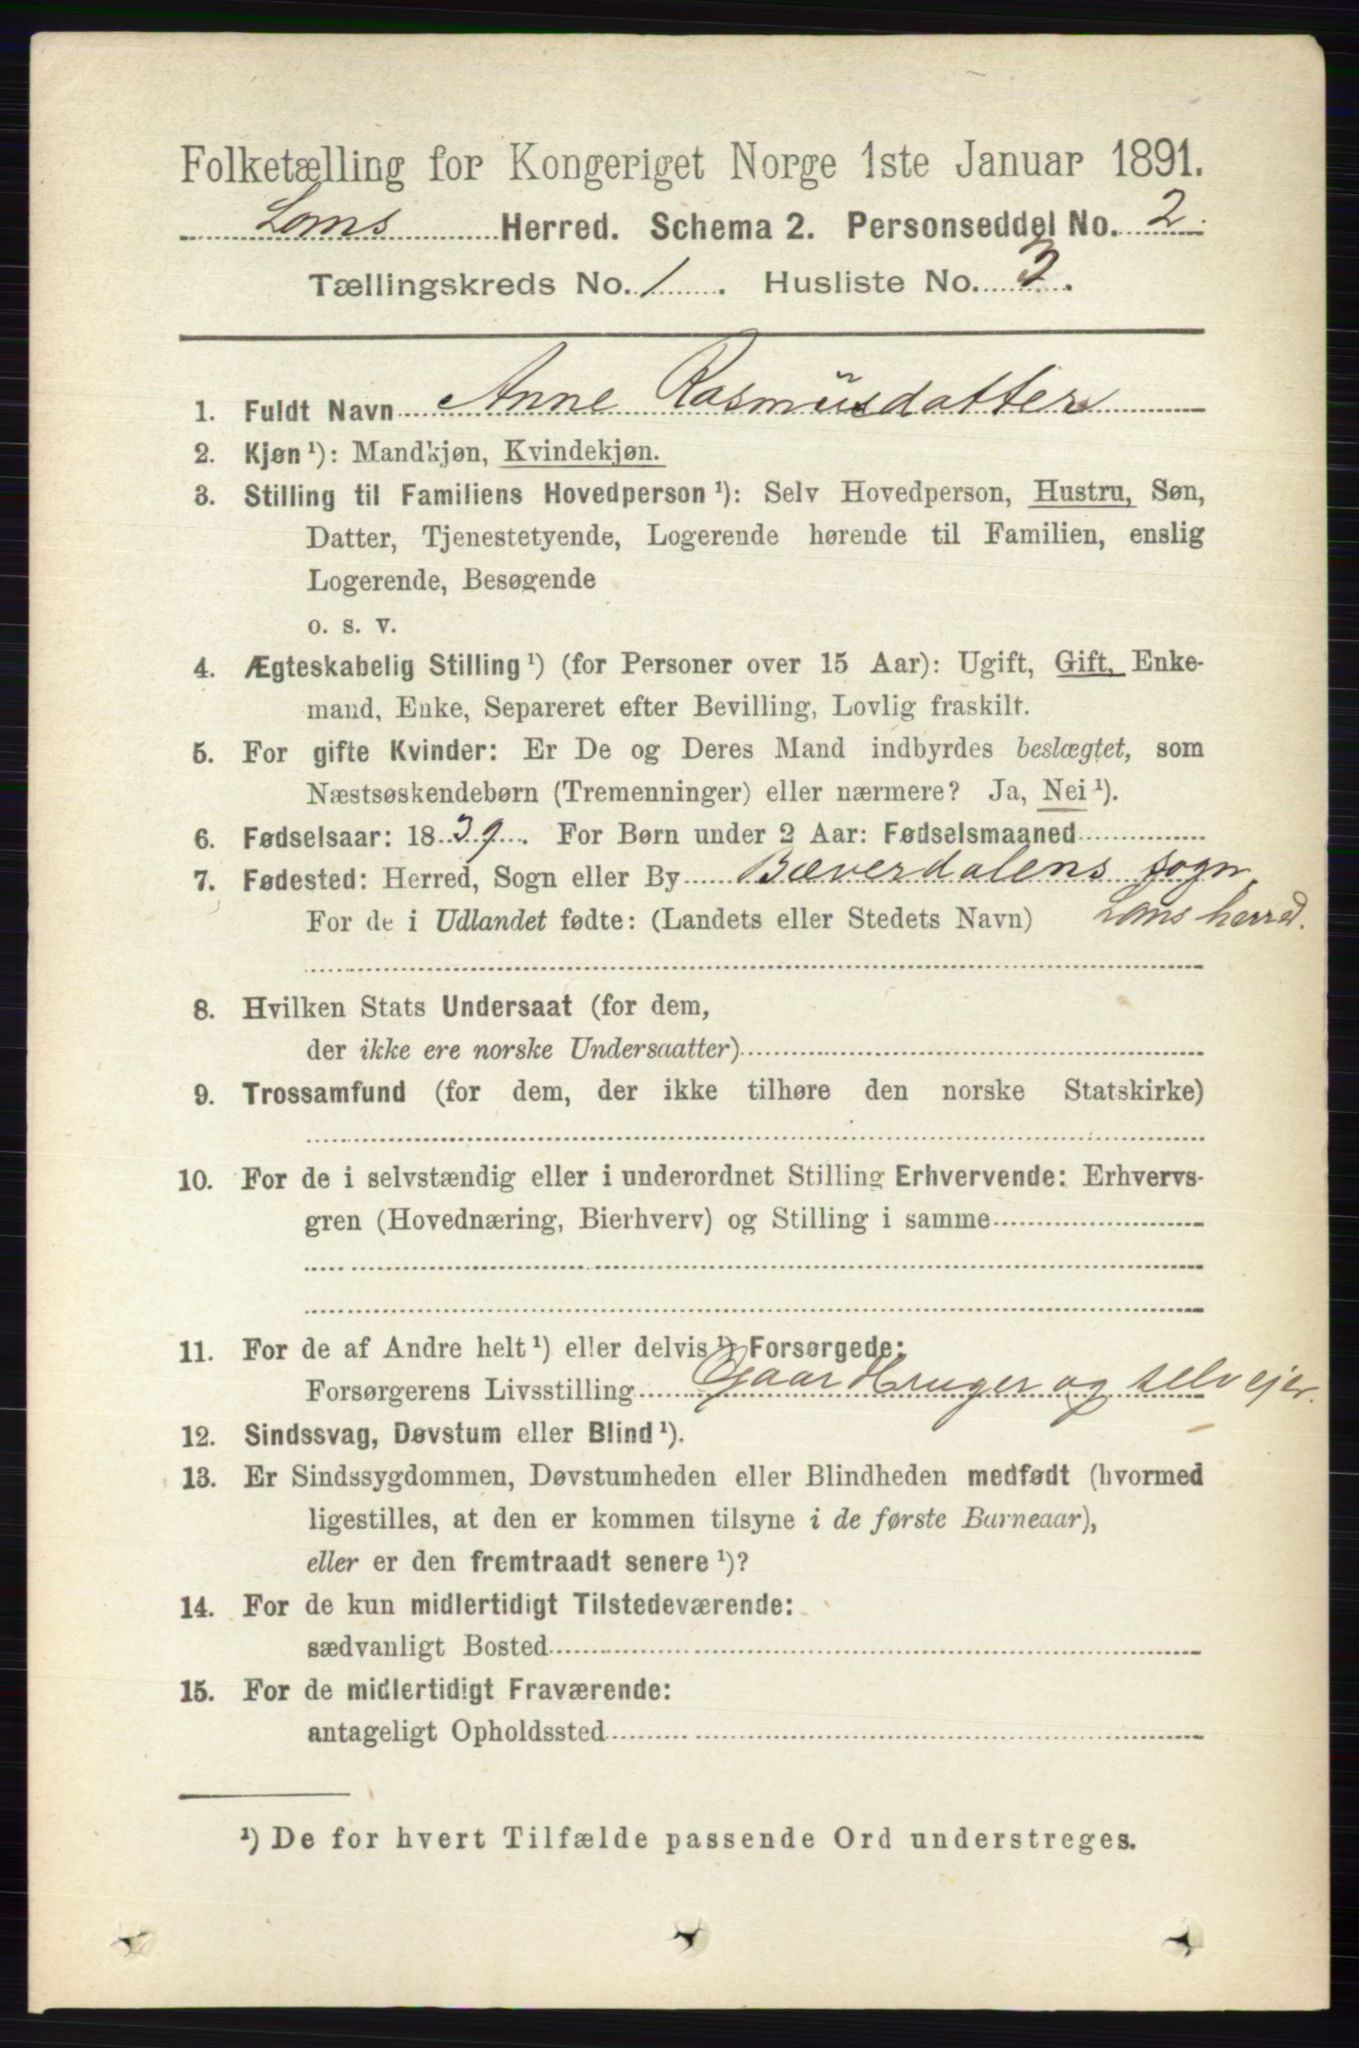 Folketælling for Kongeriget Norge 1ste Januar 1891.
Loms Herred. Schema 2. Personseddel No. 2.
Tællingskreds No. 1. Husliste No. 3.
1. Fuldt Navn Anne Rasmüsdatter
2. Kjøn¹): Mandkjøn, Kvindekjøn.
3. Stilling til Familiens Hovedperson¹): Selv Hovedperson, Hustru, Søn,
Datter, Tjenestetyende, Logerende hørende til Familien, enslig
Logerende, Besøgende
o. s. v.
4. Ægteskabelig Stilling¹) (for Personer over 15 Aar): Ugift, Gift, Enke-
mand, Enke, Separeret efter Bevilling, Lovlig fraskilt.
5. For gifte Kvinder: Er De og Deres Mand indbyrdes beslægtet, som
Næstsøskendebørn (Tremenninger) eller nærmere? Ja, Nei¹).
6. Fødselsaar: 1839. For Børn under 2 Aar: Fødselsmaaned
7. Fødested: Herred, Sogn eller By Bæverdalens sogn,
For de i Udlandet fødte: (Landets eller Stedets Navn) Loms herred.
8. Hvilken Stats Undersaat (for dem,
der ikke ere norske Undersaatter)
9. Trossamfund (for dem, der ikke tilhøre den norske Statskirke)
10. For de i selvstændig eller i underordnet Stilling Erhvervende: Erhvervs-
gren (Hovednæring, Bierhverv) og Stilling i samme
11. For de af Andre helt¹) eller delvis¹) Forsørgede:
Forsørgerens Livsstilling Gaardbruger og selvejer.
12. Sindssvag, Døvstum eller Blind¹).
13. Er Sindssygdommen, Døvstumheden eller Blindheden medfødt (hvormed
ligestilles, at den er kommen tilsyne i de første Barneaar),
eller er den fremtraadt senere¹)?
14. For de kun midlertidigt Tilstedeværende:
sædvanligt Bosted
15. For de midlertidigt Fraværende:
antageligt Opholdssted
¹) De for hvert Tilfælde passende Ord understreges.